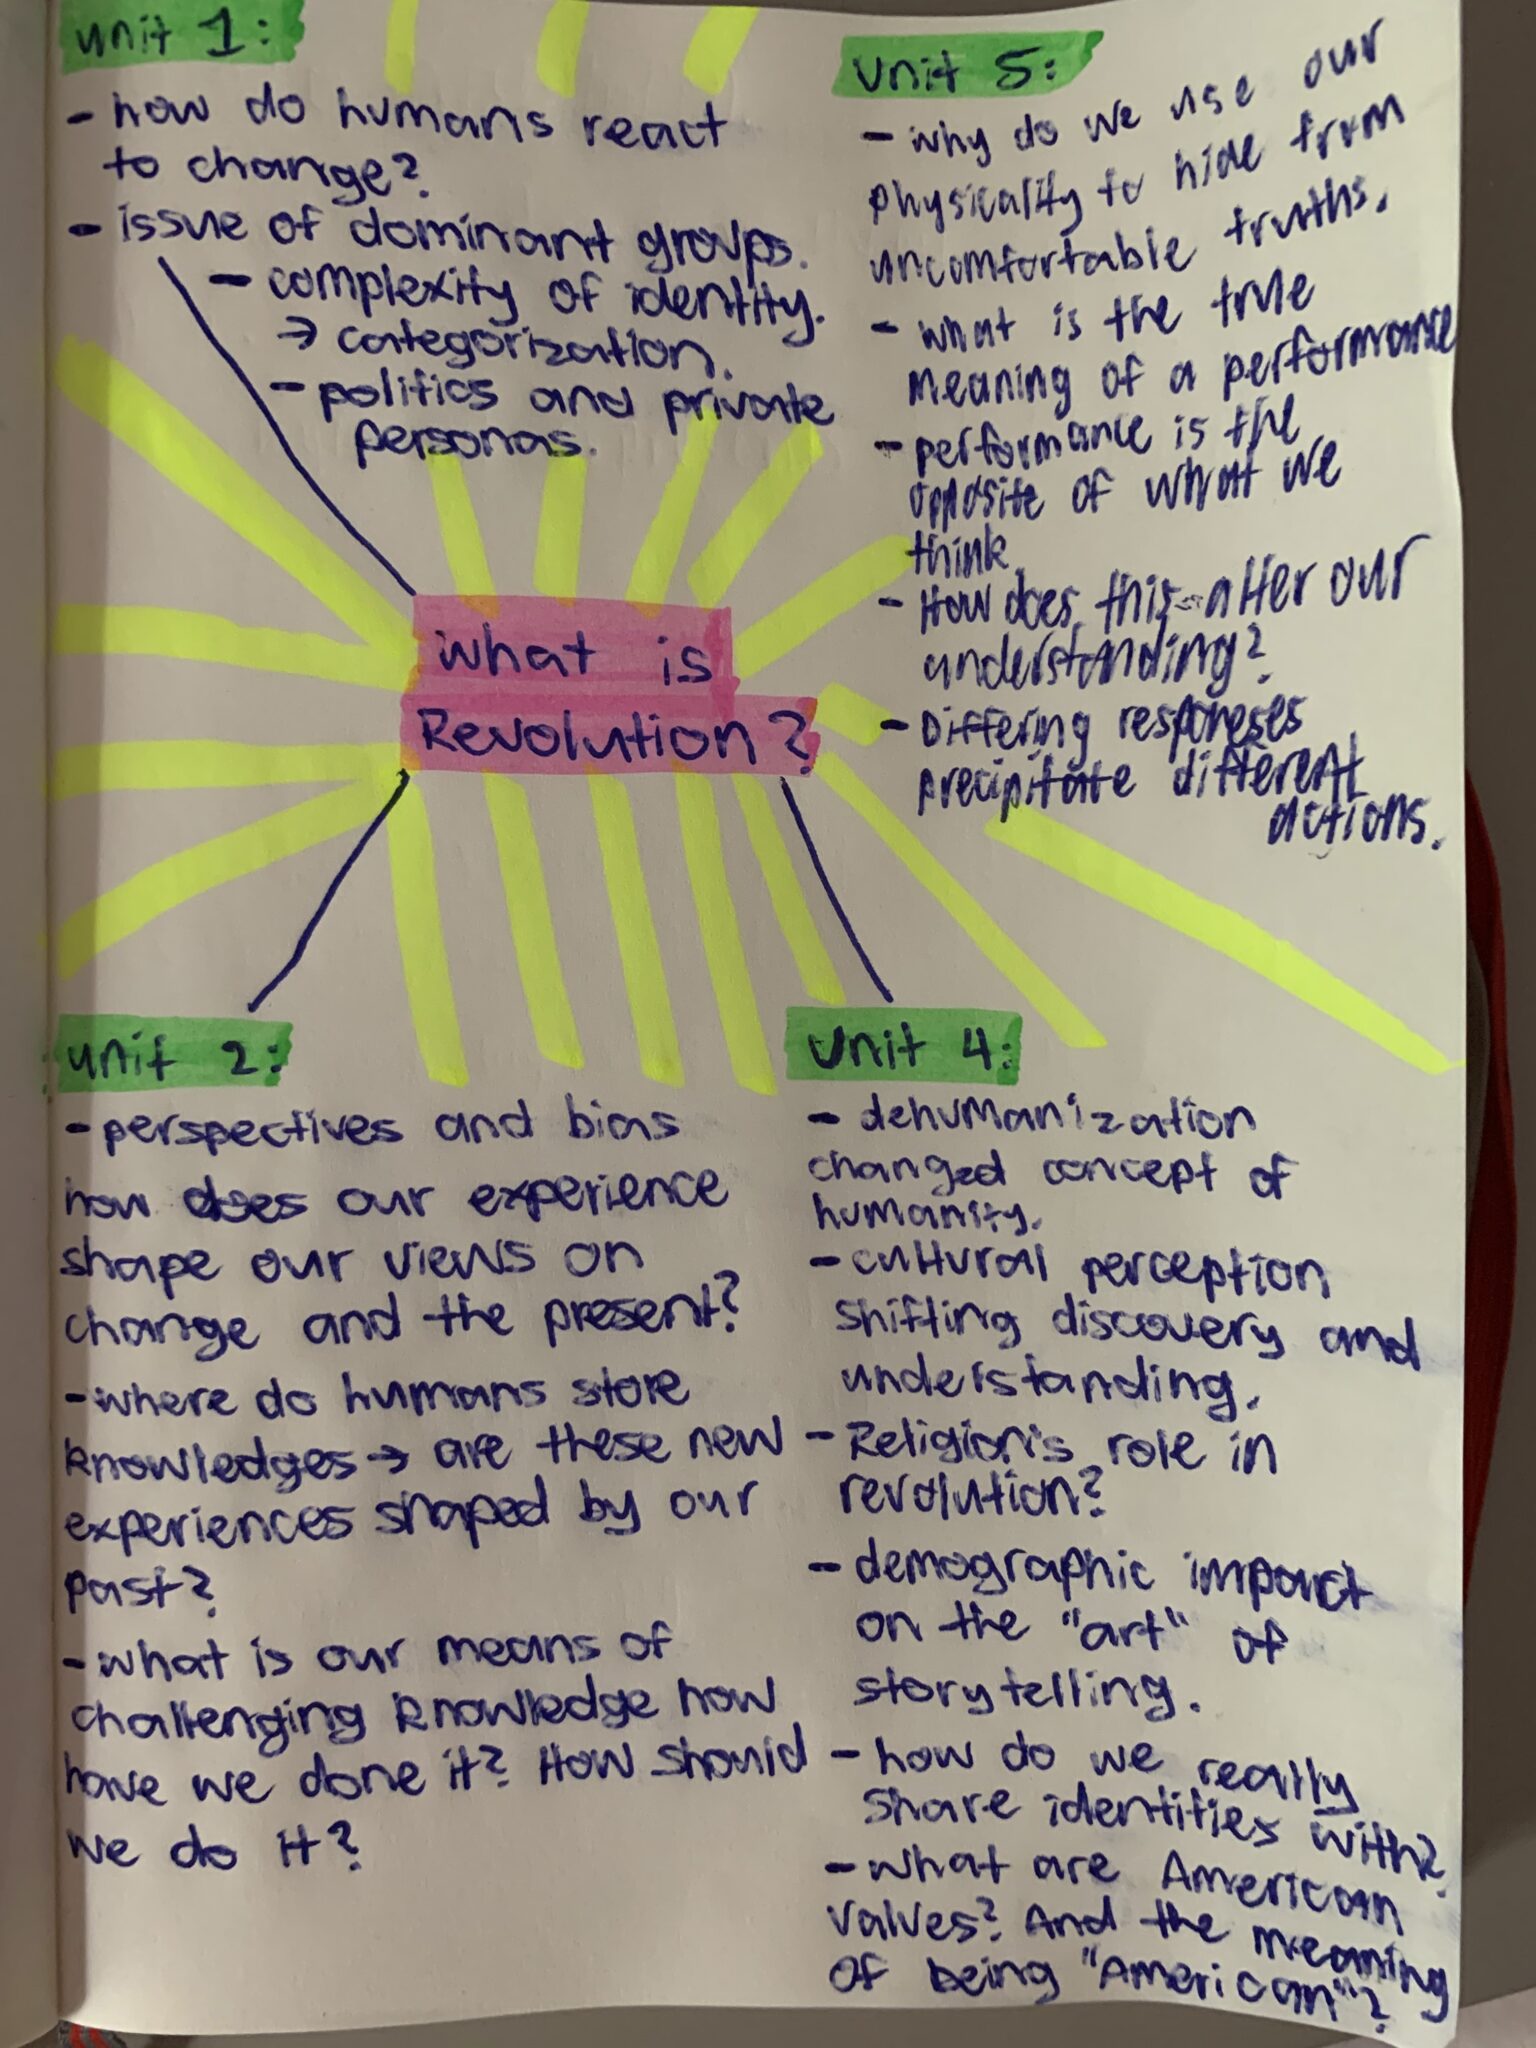 unit 1:
- how do humans react
to change?
- issue of dominant groups.
- complexity of identity.
→ categorization.
- politics and private
personas.
unit 5:
- why do we use our
physicality to hide from
uncomfortable truths.
- what is the true
meaning of a performance
- performance is the
opposite of what we
think
- How does this alter our
understanding?
- Differing responses
precipitate different
actions.
what is
Revolution?
unit 2:
- perspectives and bias
how does our experience
shape our views on
change and the present?
- where do humans store
knowledges → are these new
experiences shaped by our
past?
- what is our means of
challenging knowledge how
have we done it? How should
we do it?
Unit 4:
- dehumanization
changed concept of
humanity.
- cultural perception
shifting discovery and
understanding.
- Religion's role in
revolution?
- demographic impact
on the "art" of
storytelling.
- how do we really
share identities with?
- what are American
values? And the meaning
of being "American"?